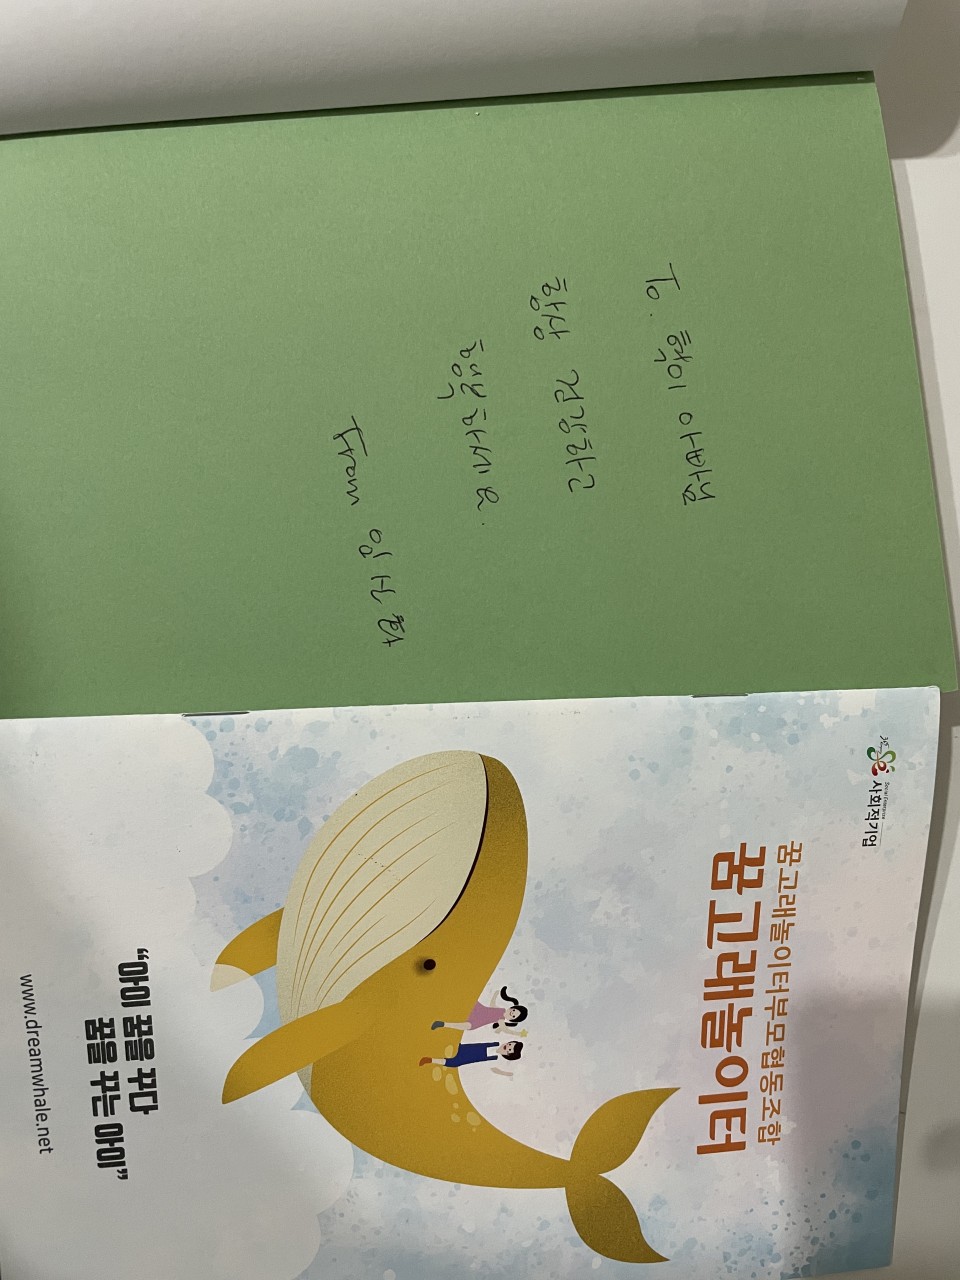 To. 혁이 아버님
항상 건강하고
행복하세요.
From
Social Enterprise
사회적기업
꿈고래놀이터부모협동조합
꿈고래놀이터
“아이 꿈을 꾸다
꿈을 꾸는 아이”
www.dreamwhale.net